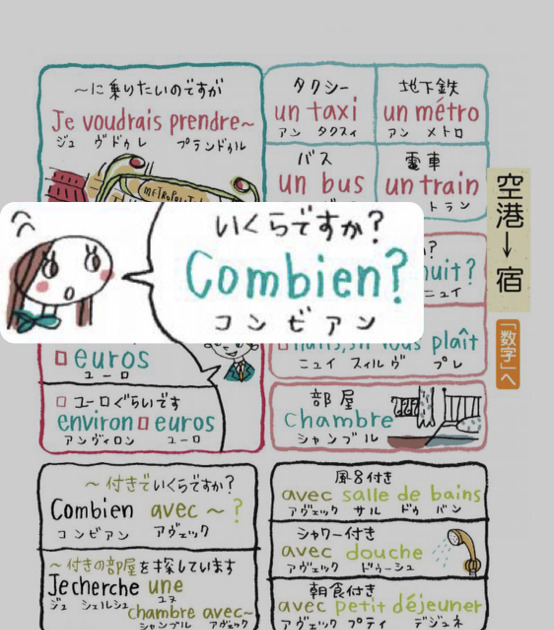 〜に乗りたいのですが
Je voudrais prendre〜
ジュ ヴドゥレ プランドゥル
METROPOLIT
タクシー
un taxi
アン タクスィ
地下鉄
un métro
アン メトロ
バス
un bus
電車
un train
トラン
空港→宿
「数字」へ
いくらですか?
Combien?
コンビアン
?
nuit?
ニュイ
□ euros
ユーロ
plaît
ニュイ スィル ヴ プレ
□ユーロぐらいです
environ □ euros
アンヴィロン ユーロ
部屋
chambre
シャンブル
〜付きでいくらですか?
Combien avec 〜?
コンビアン アヴェック
〜付きの部屋を探しています
Je cherche une
ジュ シェルシュ ユヌ
chambre avec〜
シャンブル アヴェック
風呂付き
avec salle de bains
アヴェック サル ドゥ バン
シャワー付き
avec douche
アヴェック ドゥーシュ
朝食付き
avec petit déjeuner
アヴェック プティ デジュネ